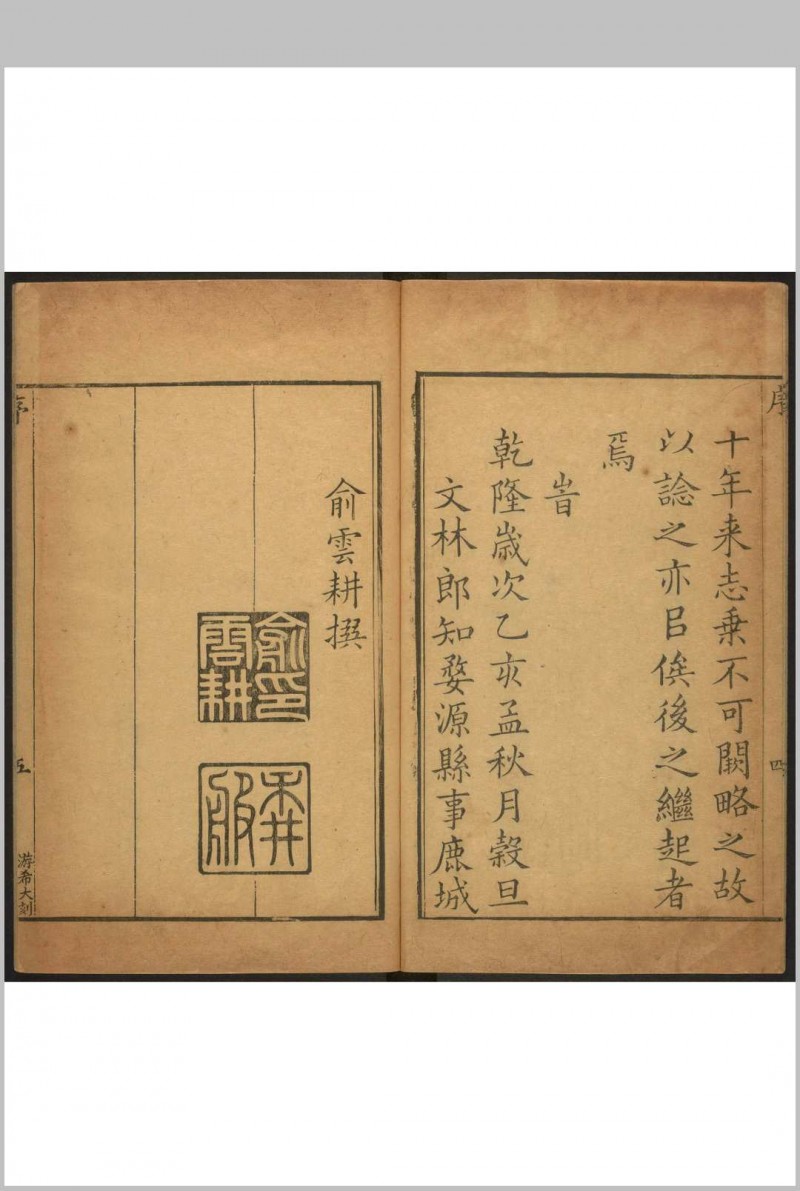 序
四
十年来志乗不可闕略之故
以諗之亦㠯俟後之繼起者
焉
旹
乾隆歳次乙亥孟秋月穀旦
文林郎知婺源縣事鹿城
俞雲耕撰
俞印
雲耕
序
五
游希大刻